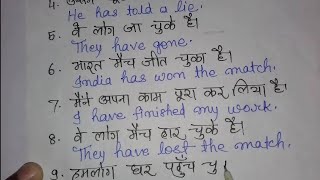 He has told a lie.
5. वे लोग जा चुके हैं।
They have gone.
6. भारत मैच जीत चुका है।
India has won the match.
7. मैंने अपना काम पूरा कर लिया है।
I have finished my work.
8. वे लोग मैच हार चुके हैं।
They have lost the match.
9. हमलोग घर पहुँच चु